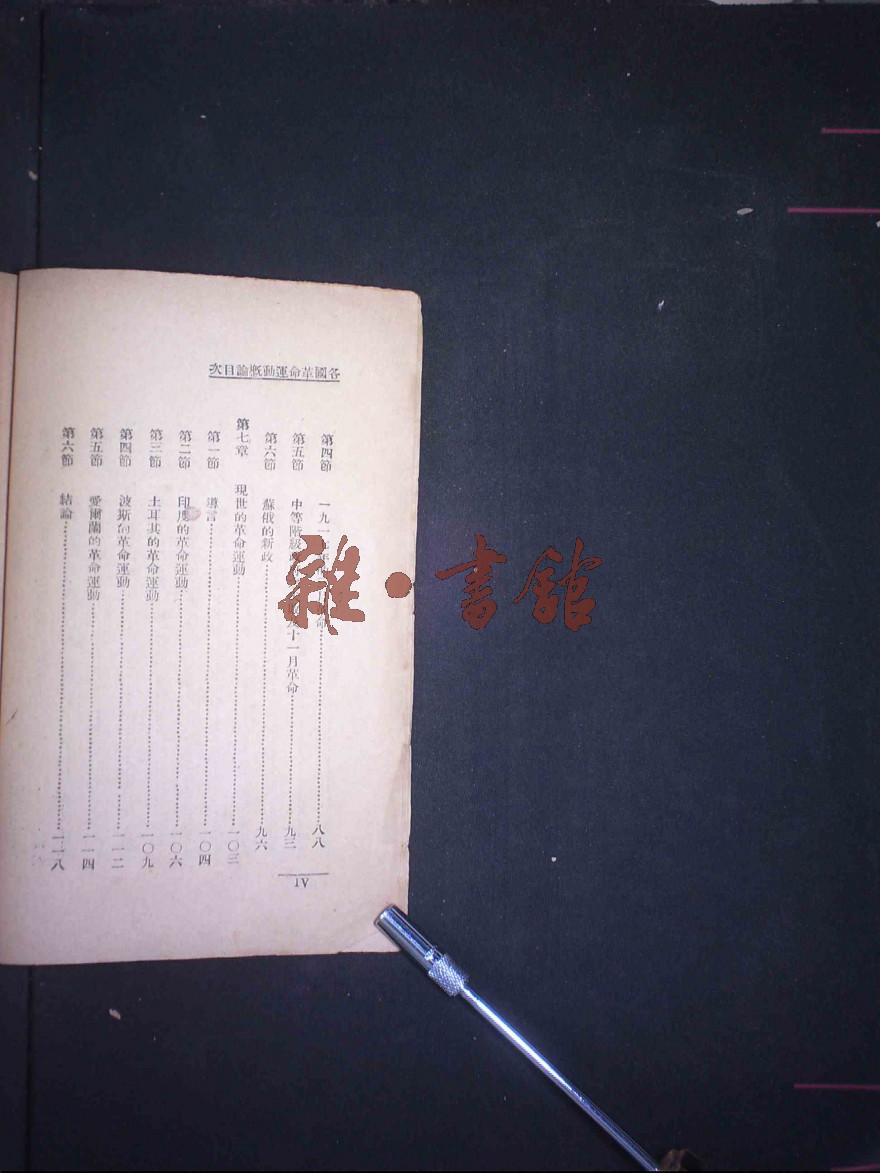 各國革命運動概論目次
第四節 一九一 命 八八
第五節 中等階級 十一月革命 九三
第六節 蘇俄的新政 九六
第七章 現世的革命運動 一〇三
第一節 導言 一〇四
第二節 印度的革命運動 一〇六
第三節 土耳其的革命運動 一〇九
第四節 波斯的革命運動 一一二
第五節 愛爾蘭的革命運動 一一四
第六節 結論 一一八
IV
雜·書館